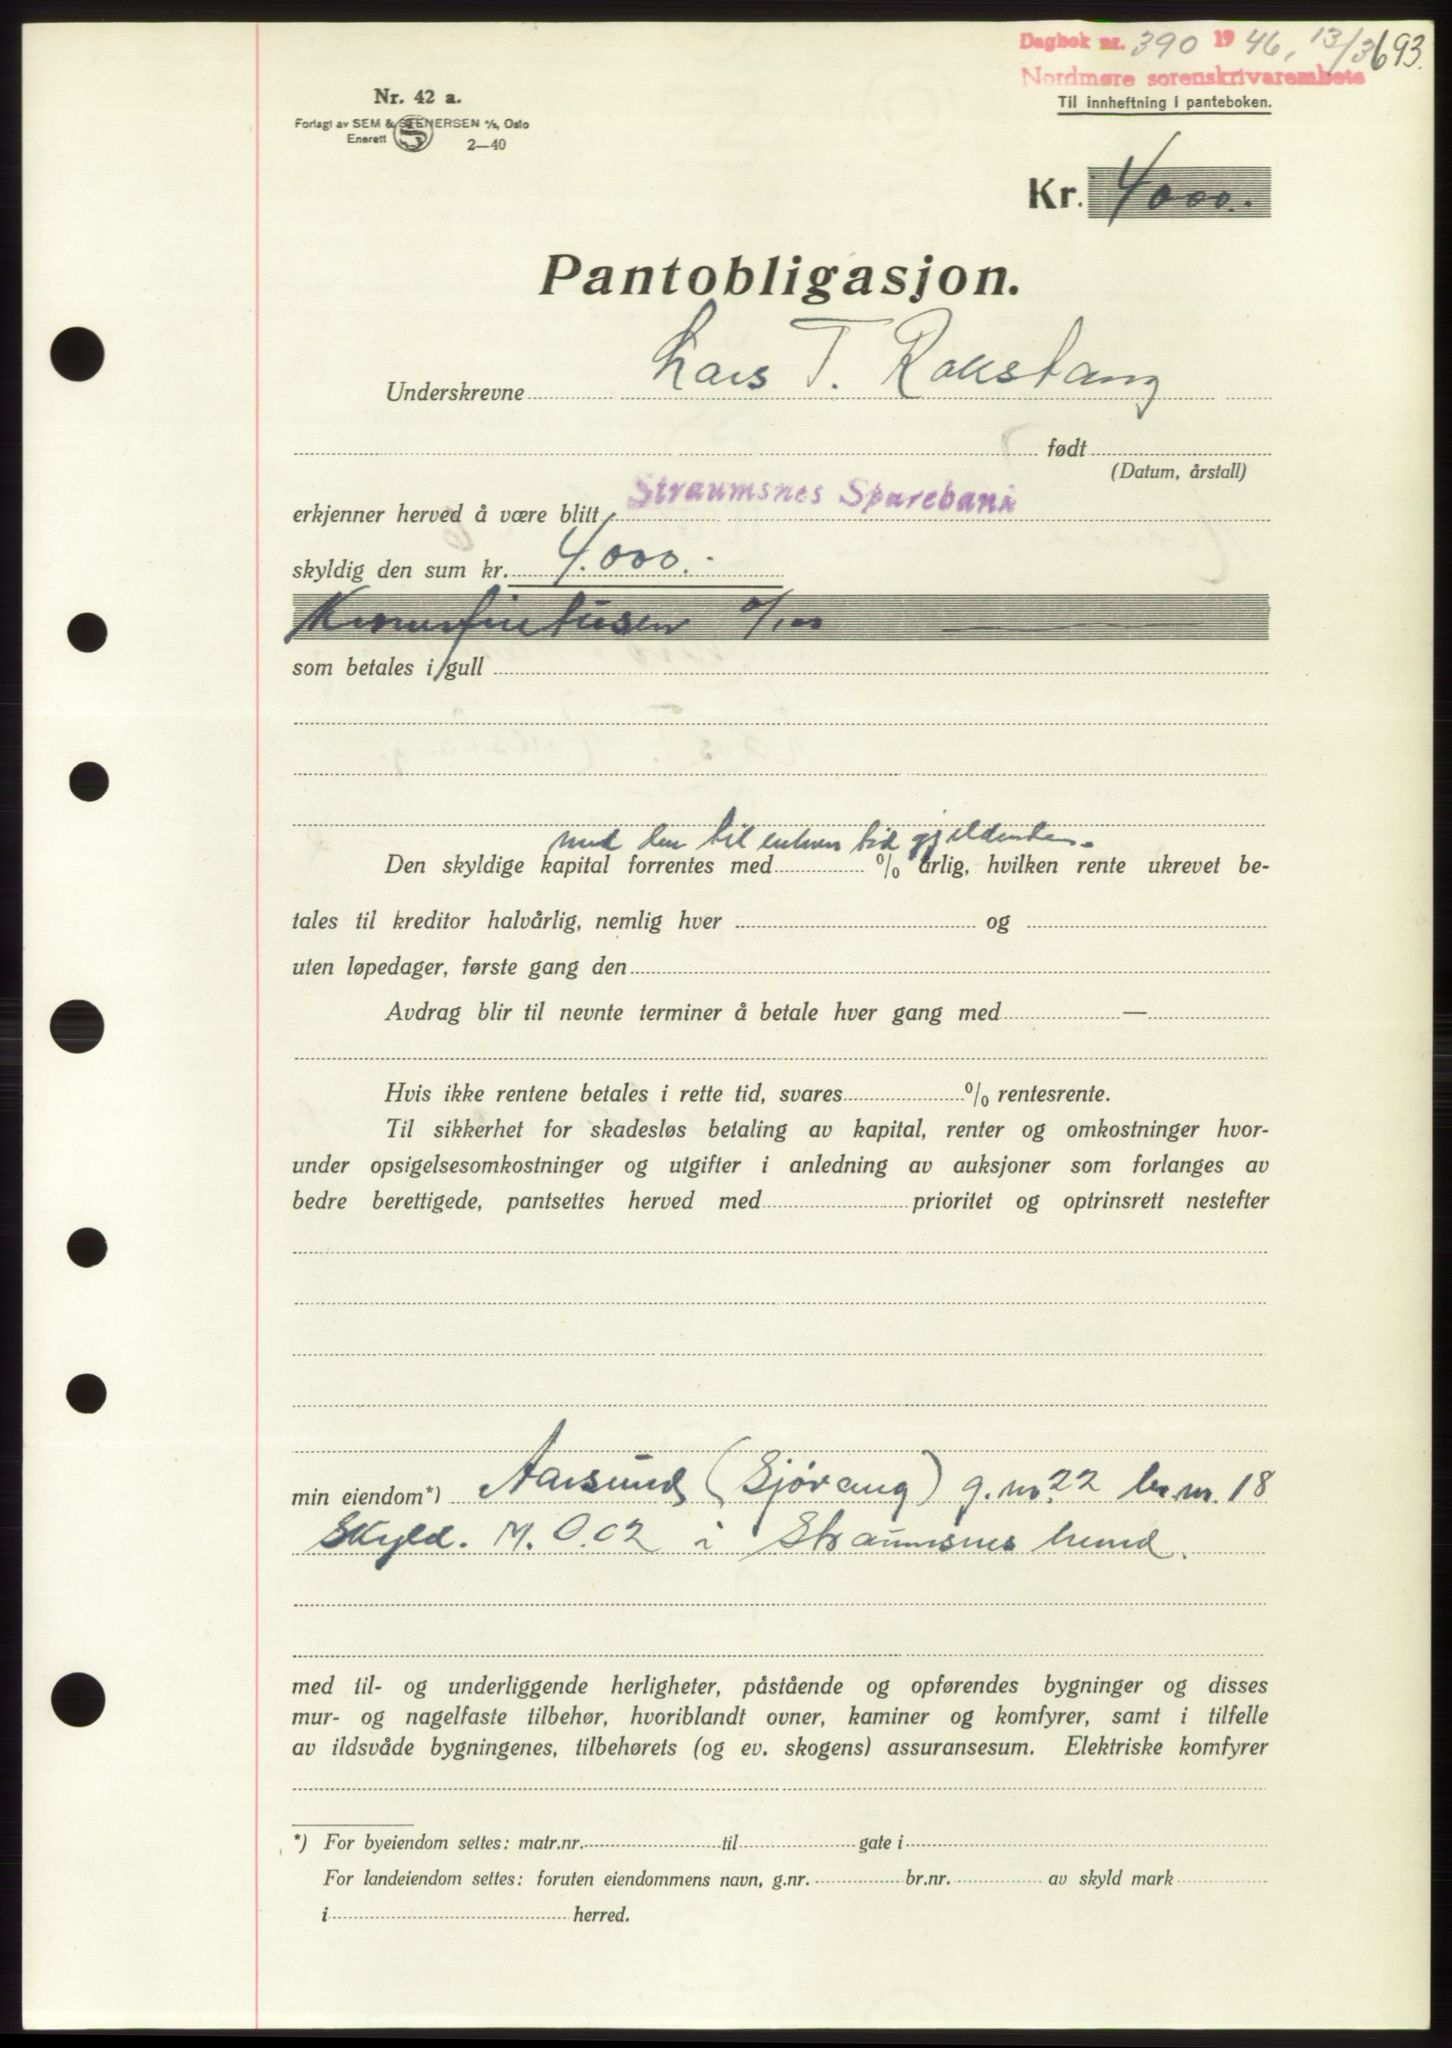 Dagbok nr. 390 1946, 13/3 693.
Nordmøre sorenskrivarembete
Til innheftning i panteboken.
Nr. 42 a.
Forlagt av SEM & STENERSEN A/S, Oslo
Enerett 2—40
Kr. 4000.-
Pantobligasjon.
Underskrevne Lars T. Rokstang
født
(Datum, årstall)
erkjenner herved å være blitt Straumsnes Sparebank
skyldig den sum kr. 4.000.-
Kronerfiretusen 0/100
som betales i gull
med den til enhver tid gjeldende
Den skyldige kapital forrentes med % årlig, hvilken rente ukrevet be-
tales til kreditor halvårlig, nemlig hver og
uten løpedager, første gang den
Avdrag blir til nevnte terminer å betale hver gang med —
Hvis ikke rentene betales i rette tid, svares % rentesrente.
Til sikkerhet for skadesløs betaling av kapital, renter og omkostninger hvor-
under opsigelsesomkostninger og utgifter i anledning av auksjoner som forlanges av
bedre berettigede, pantsettes herved med prioritet og optrinsrett nestefter
min eiendom*) Aarsund (Sjövang) g.nr. 22 br.nr. 18
Skyld. M. 0.02 i Straumsnes herred.
med til- og underliggende herligheter, påstående og opførendes bygninger og disses
mur- og nagelfaste tilbehør, hvoriblandt ovner, kaminer og komfyrer, samt i tilfelle
av ildsvåde bygningenes, tilbehørets (og ev. skogens) assuransesum. Elektriske komfyrer
*) For byeiendom settes: matr.nr. til gate i
For landeiendom settes: foruten eiendommens navn, g.nr. br.nr. av skyld mark
i herred.